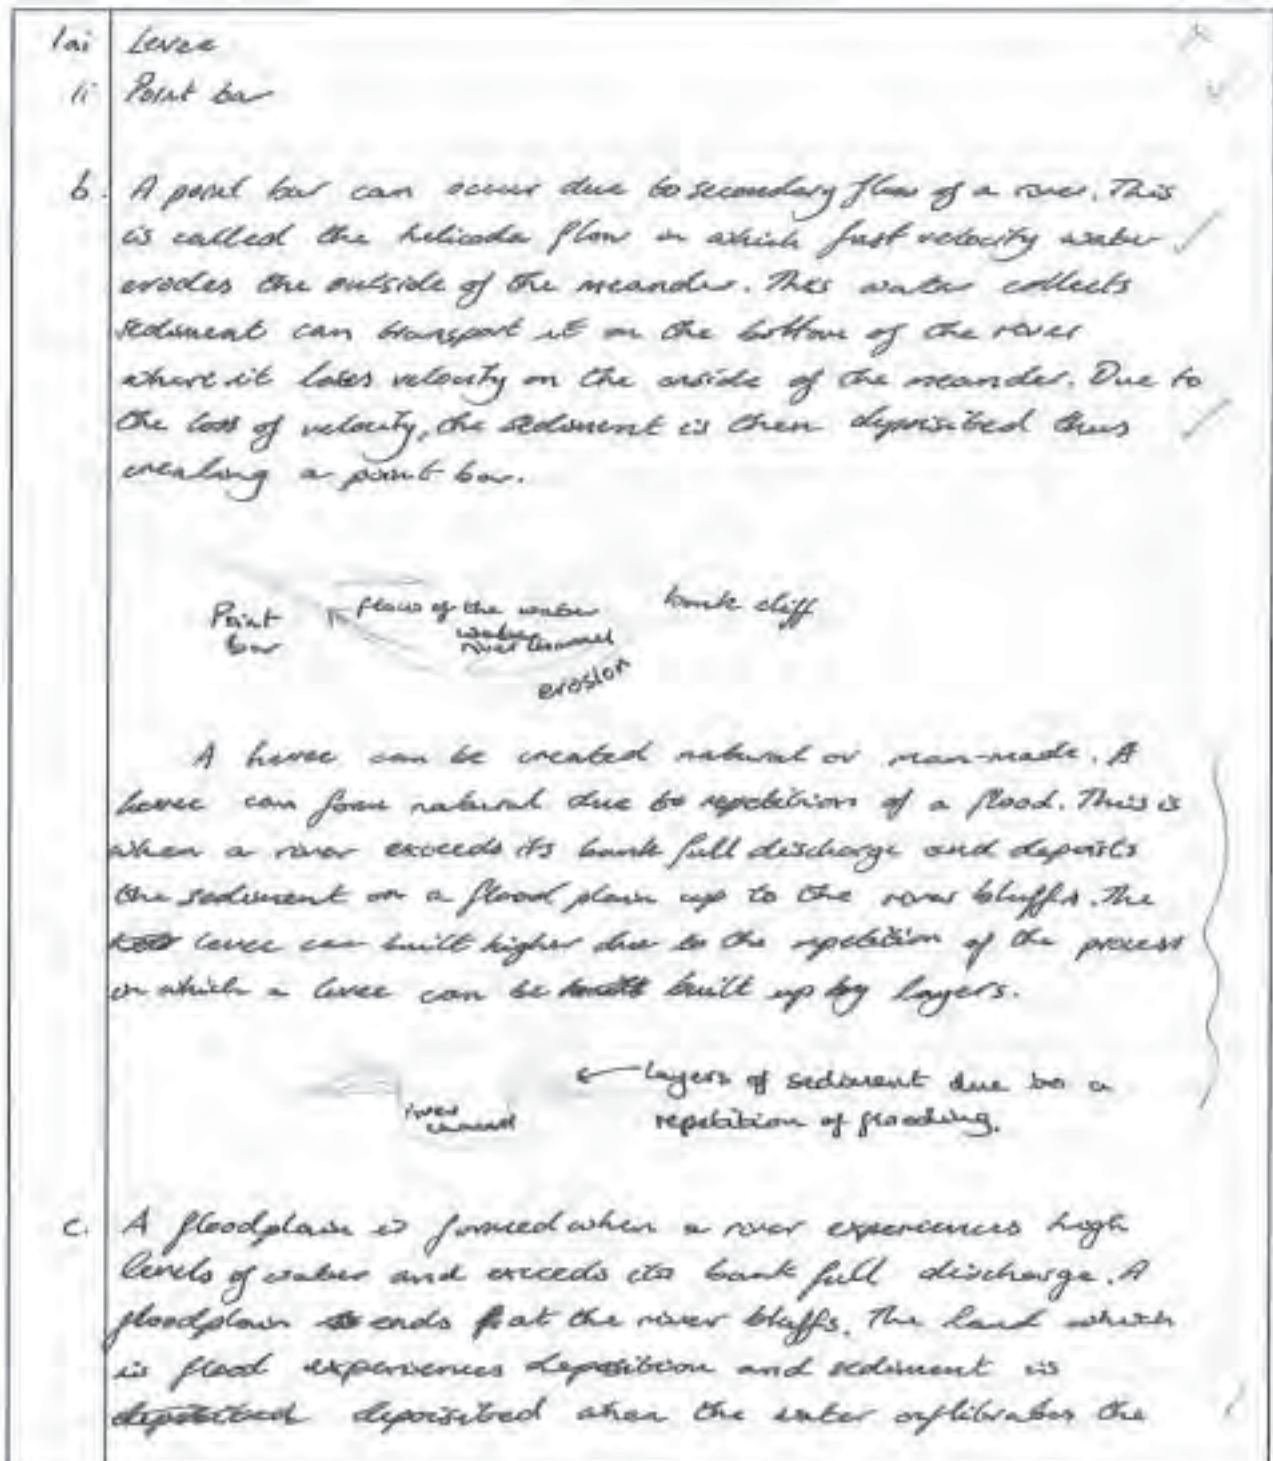 1ai Levee
ii Point bar
b. A point bar can occur due to secondary flow of a river. This
is called the helicoda flow in which fast velocity water
erodes the outside of the meander. This water collects
sediment can transport it on the bottom of the river
where it loses velocity on the inside of the meander. Due to
the loss of velocity, the sediment is then deposited thus
creating a point bar.
Point bar
flow of the water
water
river channel
erosion
bank cliff
A levee can be created natural or man-made. A
levee can form natural due to repetition of a flood. This is
when a river exceeds its bank full discharge and deposits
the sediment on a flood plain up to the river bluffs. The
levee can built higher due to the repetition of the process
in which a levee can be built up by layers.
river channel
layers of sediment due to a
repetition of flooding.
c. A floodplain is formed when a river experiences high
levels of water and exceeds its bank full discharge. A
floodplain ends at the river bluffs. The land which
is flood experiences deposition and sediment is
deposited when the water the